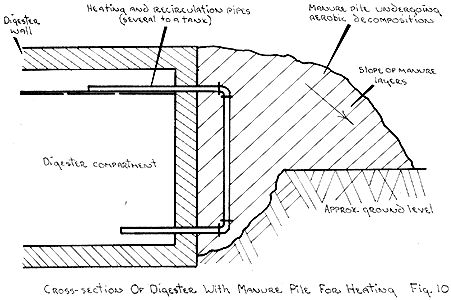 Digester
wall
Heating and recirculation pipes
(several to a tank)
Manure pile undergoing
aerobic decomposition
Slope of manure
layers
Digester compartment
Approx. ground level
Cross-section Of Digester With Manure Pile For Heating Fig. 10